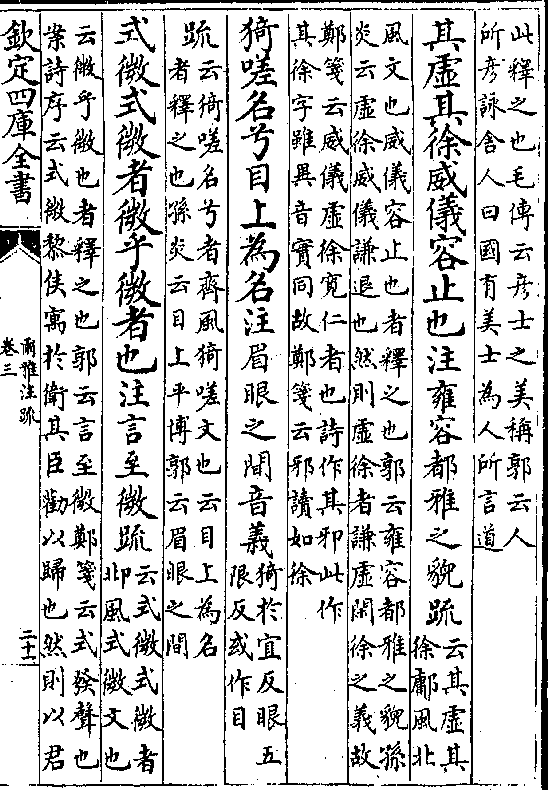 此釋之也毛傳云彦士之美稱郭云人
所彦詠舎人曰國有美士為人所言道
其虚其徐威儀容止也注雍容都雅之貌疏
云其虚其
徐鄘風北
風文也威儀容止也者釋之也郭云雍容都雅之貌孫
炎云虚徐威儀謙退也然則虚徐者謙虚閑徐之義故
鄭箋云威儀虚徐寛仁者也詩作其邪此作
其徐字雖異音實同故鄭箋云邪讀如徐
猗嗟名兮目上為名注眉眼之間音義
猗於宜反眼五
限反或作目
疏
云猗嗟名兮者齊風猗嗟文也云目上為名
者釋之也孫炎云目上平博郭云眉眼之間
式微式微者微乎微者也注言至微疏
云式微式微者
邶風式微文也
云微乎微也者釋之也郭云言至微鄭箋云式發聲也
案詩序云式微黎侯寓於衛其臣勸以歸也然則以君
欽定四庫全書
爾雅注疏
卷三
二十一